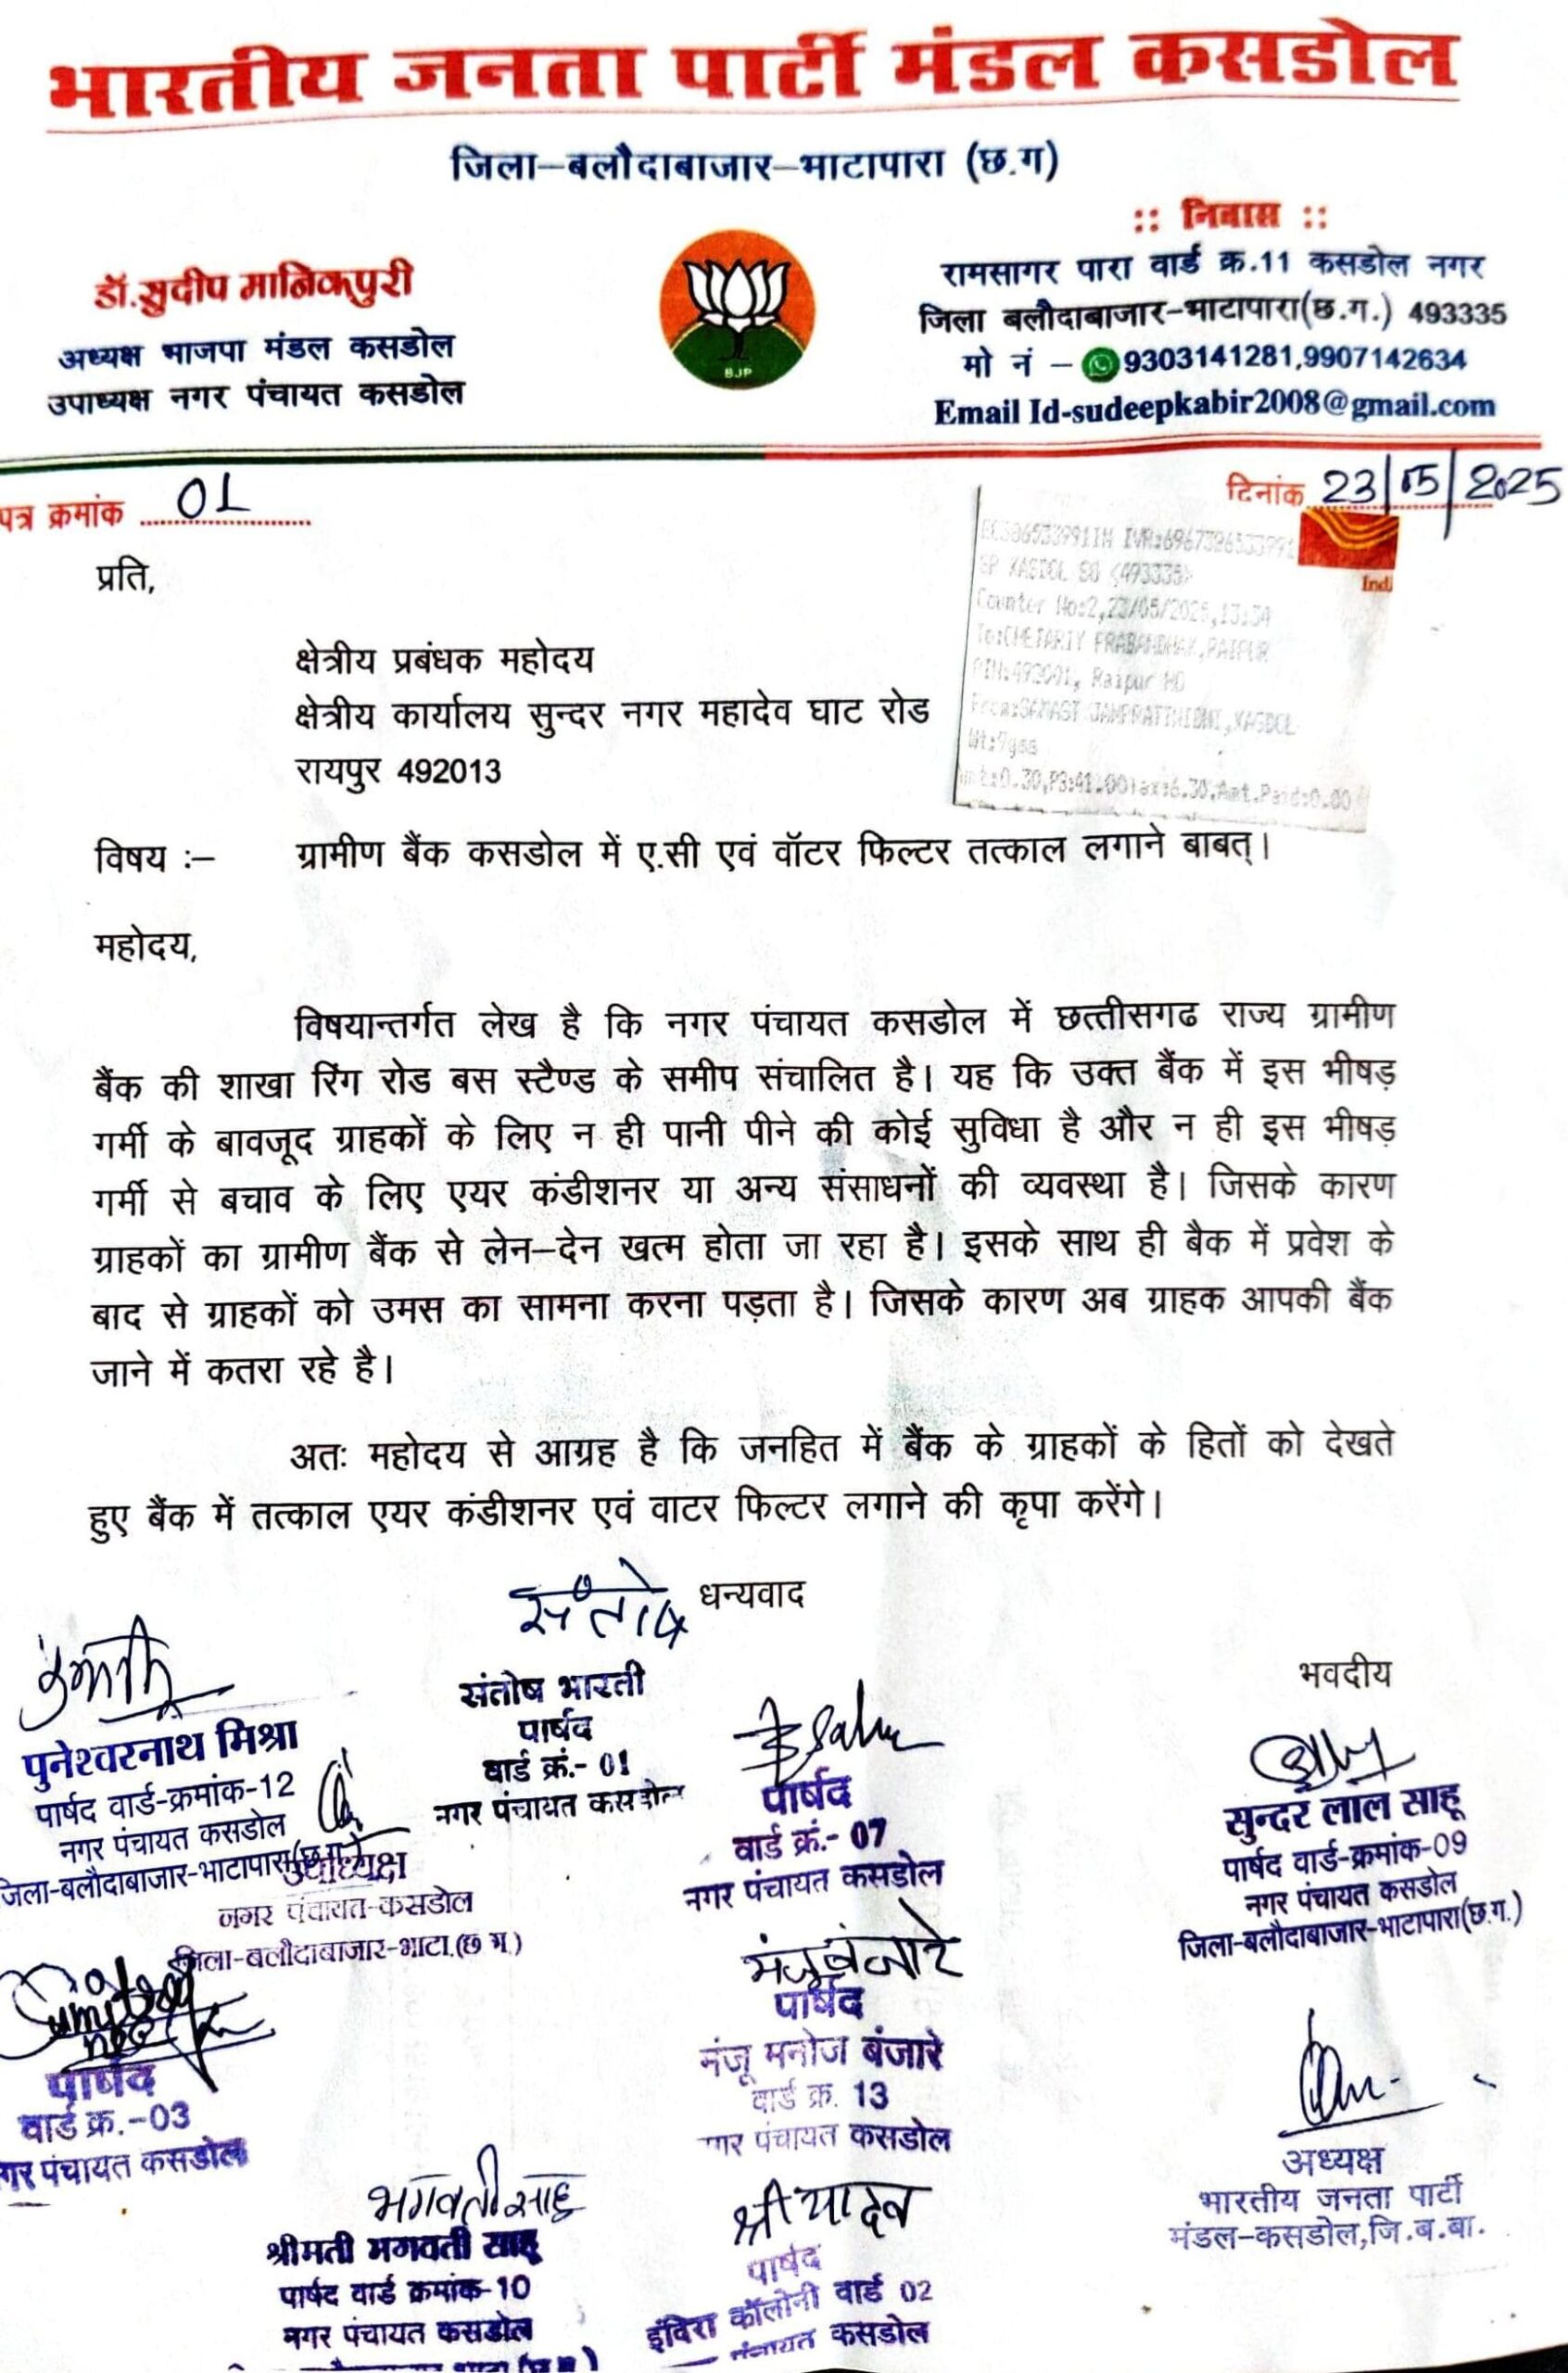 भारतीय जनता पार्टी मंडल कसडोल
जिला–बलौदाबाजार–भाटापारा (छ.ग)
डॉ.सुदीप मानिकपुरी
अध्यक्ष भाजपा मंडल कसडोल
उपाध्यक्ष नगर पंचायत कसडोल
BJP
:: निवास ::
रामसागर पारा वार्ड क्र.11 कसडोल नगर
जिला बलौदाबाजार-भाटापारा(छ.ग.) 493335
मो नं – 9303141281,9907142634
Email Id-sudeepkabir2008@gmail.com
पत्र क्रमांक 01
दिनांक 23/05/2025
SP KASDOL SO <493335>
Counter No:2,23/05/2025,13:34
To:CHETARIY PRABANDHAK,RAIPUR
Raipur HO
From:SAMAST JANPRATINIDHI,KASDOL
Wt:9gms
प्रति,
क्षेत्रीय प्रबंधक महोदय
क्षेत्रीय कार्यालय सुन्दर नगर महादेव घाट रोड
रायपुर 492013
विषय :– ग्रामीण बैंक कसडोल में ए.सी एवं वॉटर फिल्टर तत्काल लगाने बाबत्।
महोदय,
विषयान्तर्गत लेख है कि नगर पंचायत कसडोल में छत्तीसगढ राज्य ग्रामीण
बैंक की शाखा रिंग रोड बस स्टैण्ड के समीप संचालित है। यह कि उक्त बैंक में इस भीषड़
गर्मी के बावजूद ग्राहकों के लिए न ही पानी पीने की कोई सुविधा है और न ही इस भीषड़
गर्मी से बचाव के लिए एयर कंडीशनर या अन्य संसाधनों की व्यवस्था है। जिसके कारण
ग्राहकों का ग्रामीण बैंक से लेन–देन खत्म होता जा रहा है। इसके साथ ही बैक में प्रवेश के
बाद से ग्राहकों को उमस का सामना करना पड़ता है। जिसके कारण अब ग्राहक आपकी बैंक
जाने में कतरा रहे है।
अतः महोदय से आग्रह है कि जनहित में बैंक के ग्राहकों के हितों को देखते
हुए बैंक में तत्काल एयर कंडीशनर एवं वाटर फिल्टर लगाने की कृपा करेंगे।
धन्यवाद
संतोष
संतोष भारती
पार्षद
वार्ड क्रं.- 01
नगर पंचायत कसडोल
भवदीय
पुनेश्वरनाथ मिश्रा
पार्षद वार्ड-क्रमांक-12
नगर पंचायत कसडोल
जिला-बलौदाबाजार-भाटापारा(छ.ग.)
उपाध्यक्ष
नगर पंचायत-कसडोल
जिला-बलौदाबाजार-भाटा.(छ ग.)
पार्षद
वार्ड क्रं.- 07
नगर पंचायत कसडोल
सुन्दर लाल साहू
पार्षद वार्ड-क्रमांक-09
नगर पंचायत कसडोल
जिला-बलौदाबाजार-भाटापारा(छ.ग.)
पार्षद
वार्ड क्र.-03
गर पंचायत कसडोल
मंजू बंजारे
पार्षद
मंजू मनोज बंजारे
वार्ड क्र. 13
गर पंचायत कसडोल
अध्यक्ष
भारतीय जनता पार्टी
मंडल–कसडोल,जि.ब.बा.
भगवती साहू
श्रीमती भगवती साहू
पार्षद वार्ड क्रमांक-10
नगर पंचायत कसडोल
श्री यादव
पार्षद
इंदिरा कॉलोनी वार्ड 02
पंचायत कसडोल